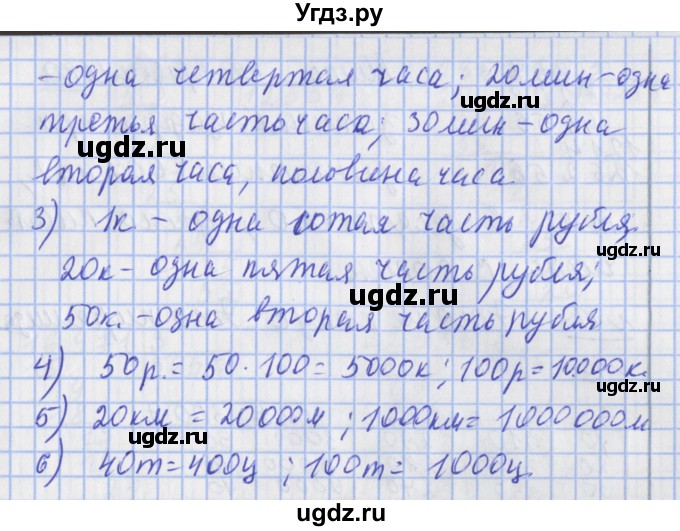 Угдз.ру
- одна четвертая часа; 20 мин - одна
третья часть часа; 30 мин - одна
вторая часа, половина часа
3) 1к - одна сотая часть рубля
20к - одна пятая часть рубля;
50к. - одна вторая часть рубля
4) 50р. = 50 · 100 = 5000к; 100р = 10000к.
5) 20км = 20000м; 1000км = 1000000м
6) 40т = 400ц; 100т = 1000ц.
ugdz.ru
ugdz.ru
ugdz.ru
ugdz.ru
ugdz.ru
ugdz.ru
ugdz.ru
ugdz.ru
ugdz.ru